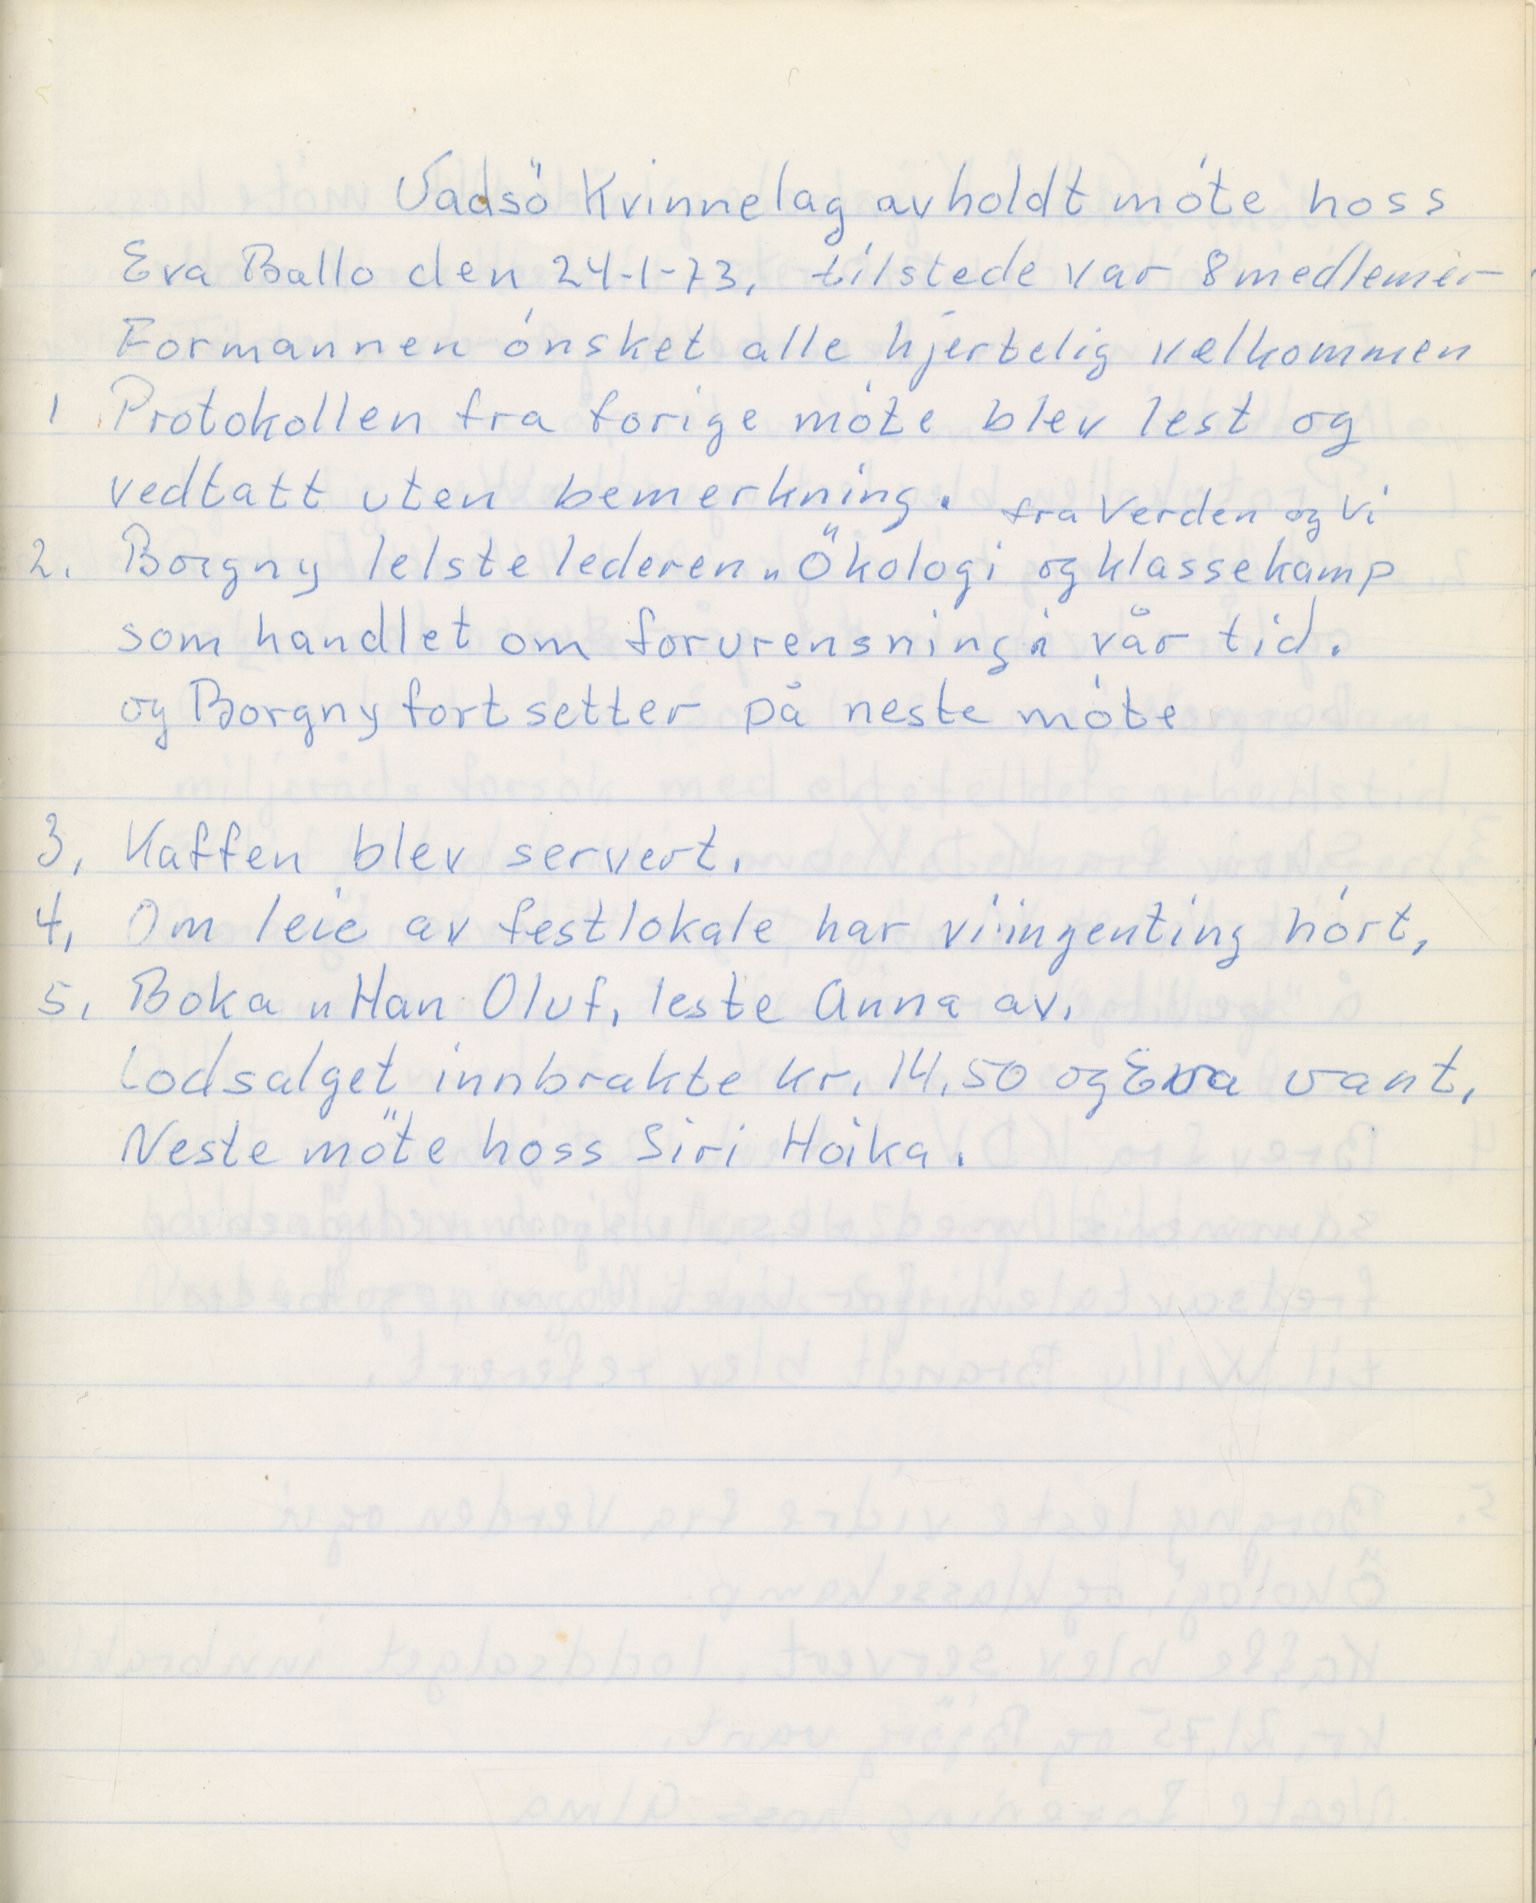 Vadsö Kvinnelag avholdt móte hoss
Eva Ballo den 24-1-73, tilstede var 8 medlemer
Formannen ónsket alle hjertelig velkommen
1 Protokollen fra forige móte blev lest og
vedtatt uten bemerkning.
fra Verden og Vi
2. Borgny lelste lederen „Ökologi og klassekamp
som handlet om forurensning i vår tid.
og Borgny fortsetter på neste móte
3, Kaffen blev servert.
4, Om leie av festlokale har vi ingenting hórt,
5, Boka „Han Oluf, leste Anna av.
Lodsalget innbrakte kr. 14,50 og Eva vant.
Neste möte hoss Siri Hoika.